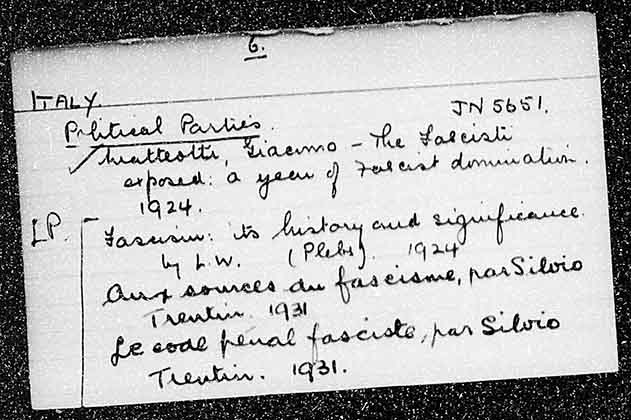 6.
ITALY.
Political Parties. JN 5651.
Matteotti, Giacomo - The Fascisti
exposed: a year of Fascist domination.
1924.
LP. Fascism: its history and significance.
by L.W. (Plebs). 1924
Aux sources du fascisme, par Silvio
Trentin. 1931
Le code penal fasciste, par Silvio
Trentin. 1931.